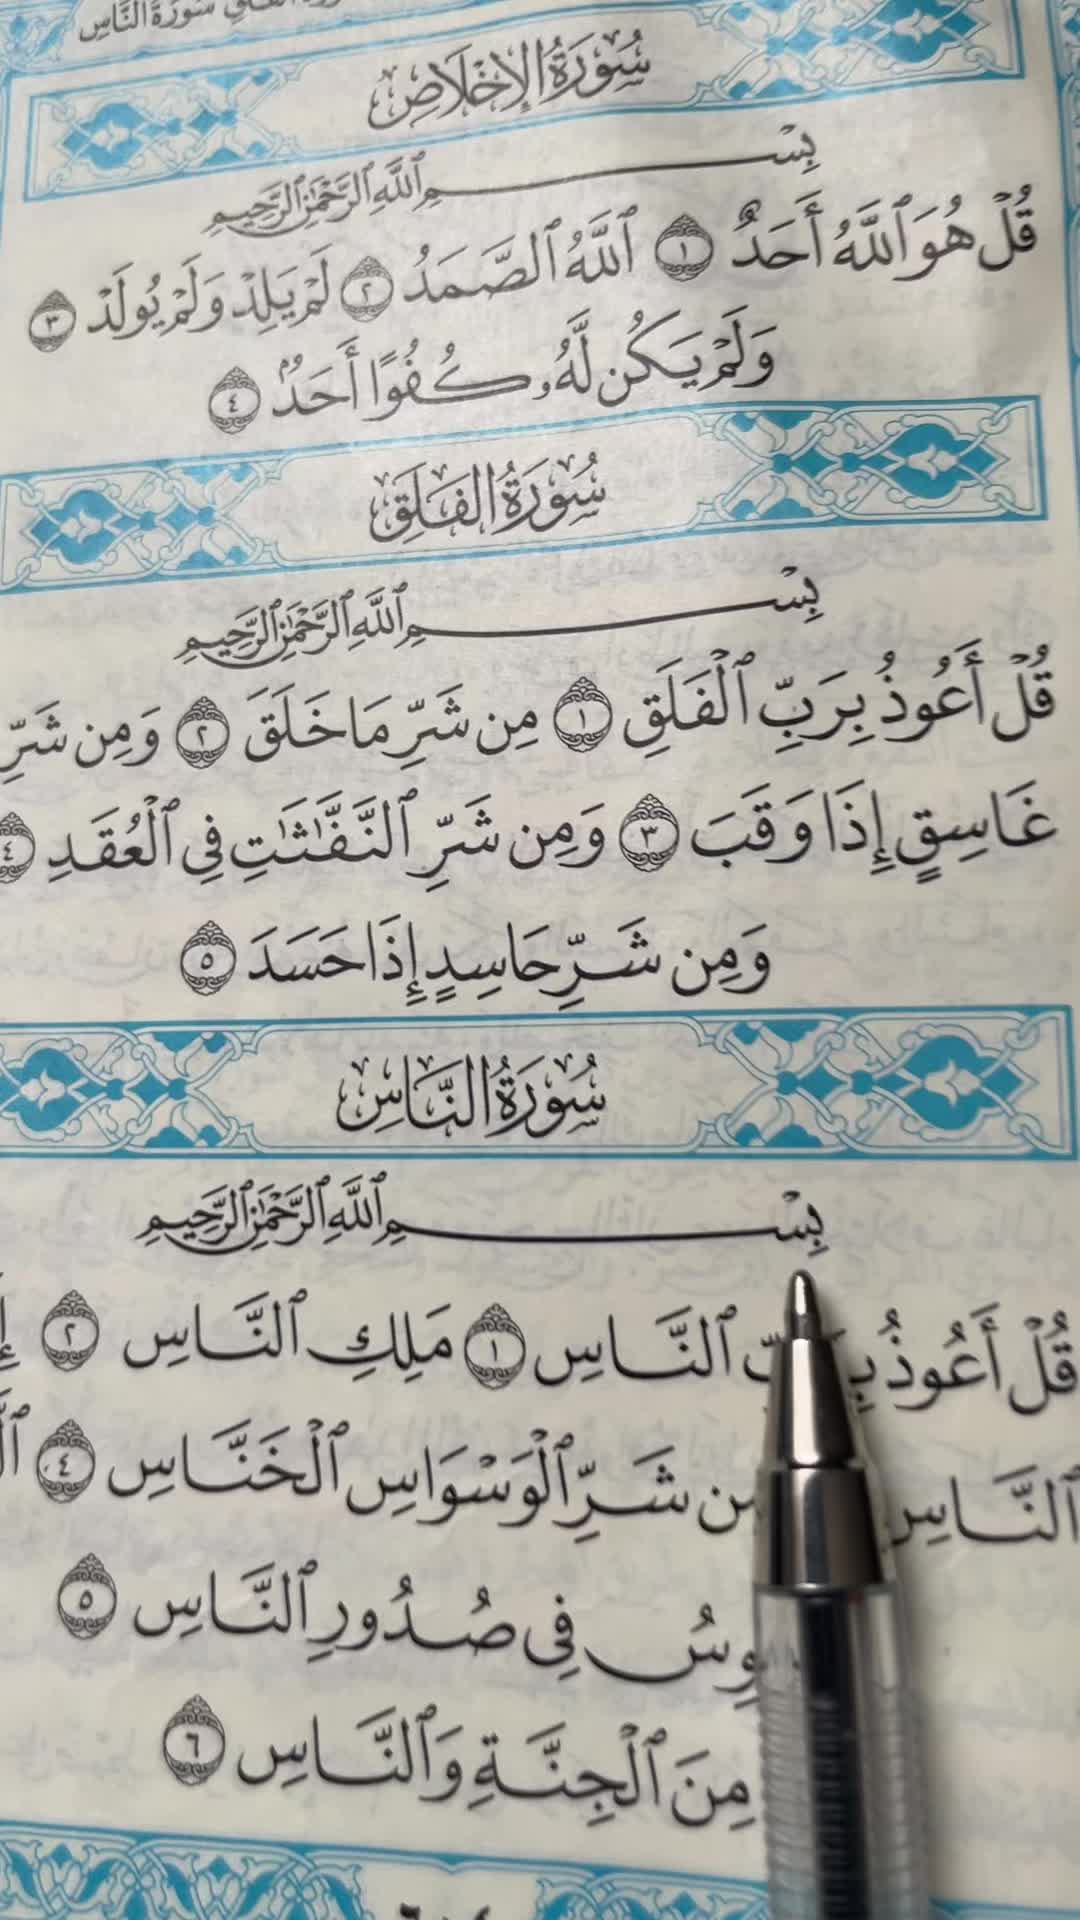 سُورَةُ النَّاسِ
سُورَةُ الإِخْلَاصِ
بِسْمِ ٱللَّهِ ٱلرَّحْمَٰنِ ٱلرَّحِيمِ
قُلْ هُوَ ٱللَّهُ أَحَدٌ ١ ٱللَّهُ ٱلصَّمَدُ ٢ لَمْ يَلِدْ وَلَمْ يُولَدْ ٣
وَلَمْ يَكُن لَّهُۥ كُفُوًا أَحَدٌۢ ٤
سُورَةُ الفَلَقِ
بِسْمِ ٱللَّهِ ٱلرَّحْمَٰنِ ٱلرَّحِيمِ
قُلْ أَعُوذُ بِرَبِّ ٱلْفَلَقِ ١ مِن شَرِّ مَا خَلَقَ ٢ وَمِن شَرِّ
غَاسِقٍ إِذَا وَقَبَ ٣ وَمِن شَرِّ ٱلنَّفَّٰثَٰتِ فِى ٱلْعُقَدِ ٤
وَمِن شَرِّ حَاسِدٍ إِذَا حَسَدَ ٥
سُورَةُ النَّاسِ
بِسْمِ ٱللَّهِ ٱلرَّحْمَٰنِ ٱلرَّحِيمِ
قُلْ أَعُوذُ ٱلنَّاسِ ١ مَلِكِ ٱلنَّاسِ ٢
ٱلنَّاسِ شَرِّ ٱلْوَسْوَاسِ ٱلْخَنَّاسِ ٤
فِى صُدُورِ ٱلنَّاسِ ٥
مِنَ ٱلْجِنَّةِ وَٱلنَّاسِ ٦